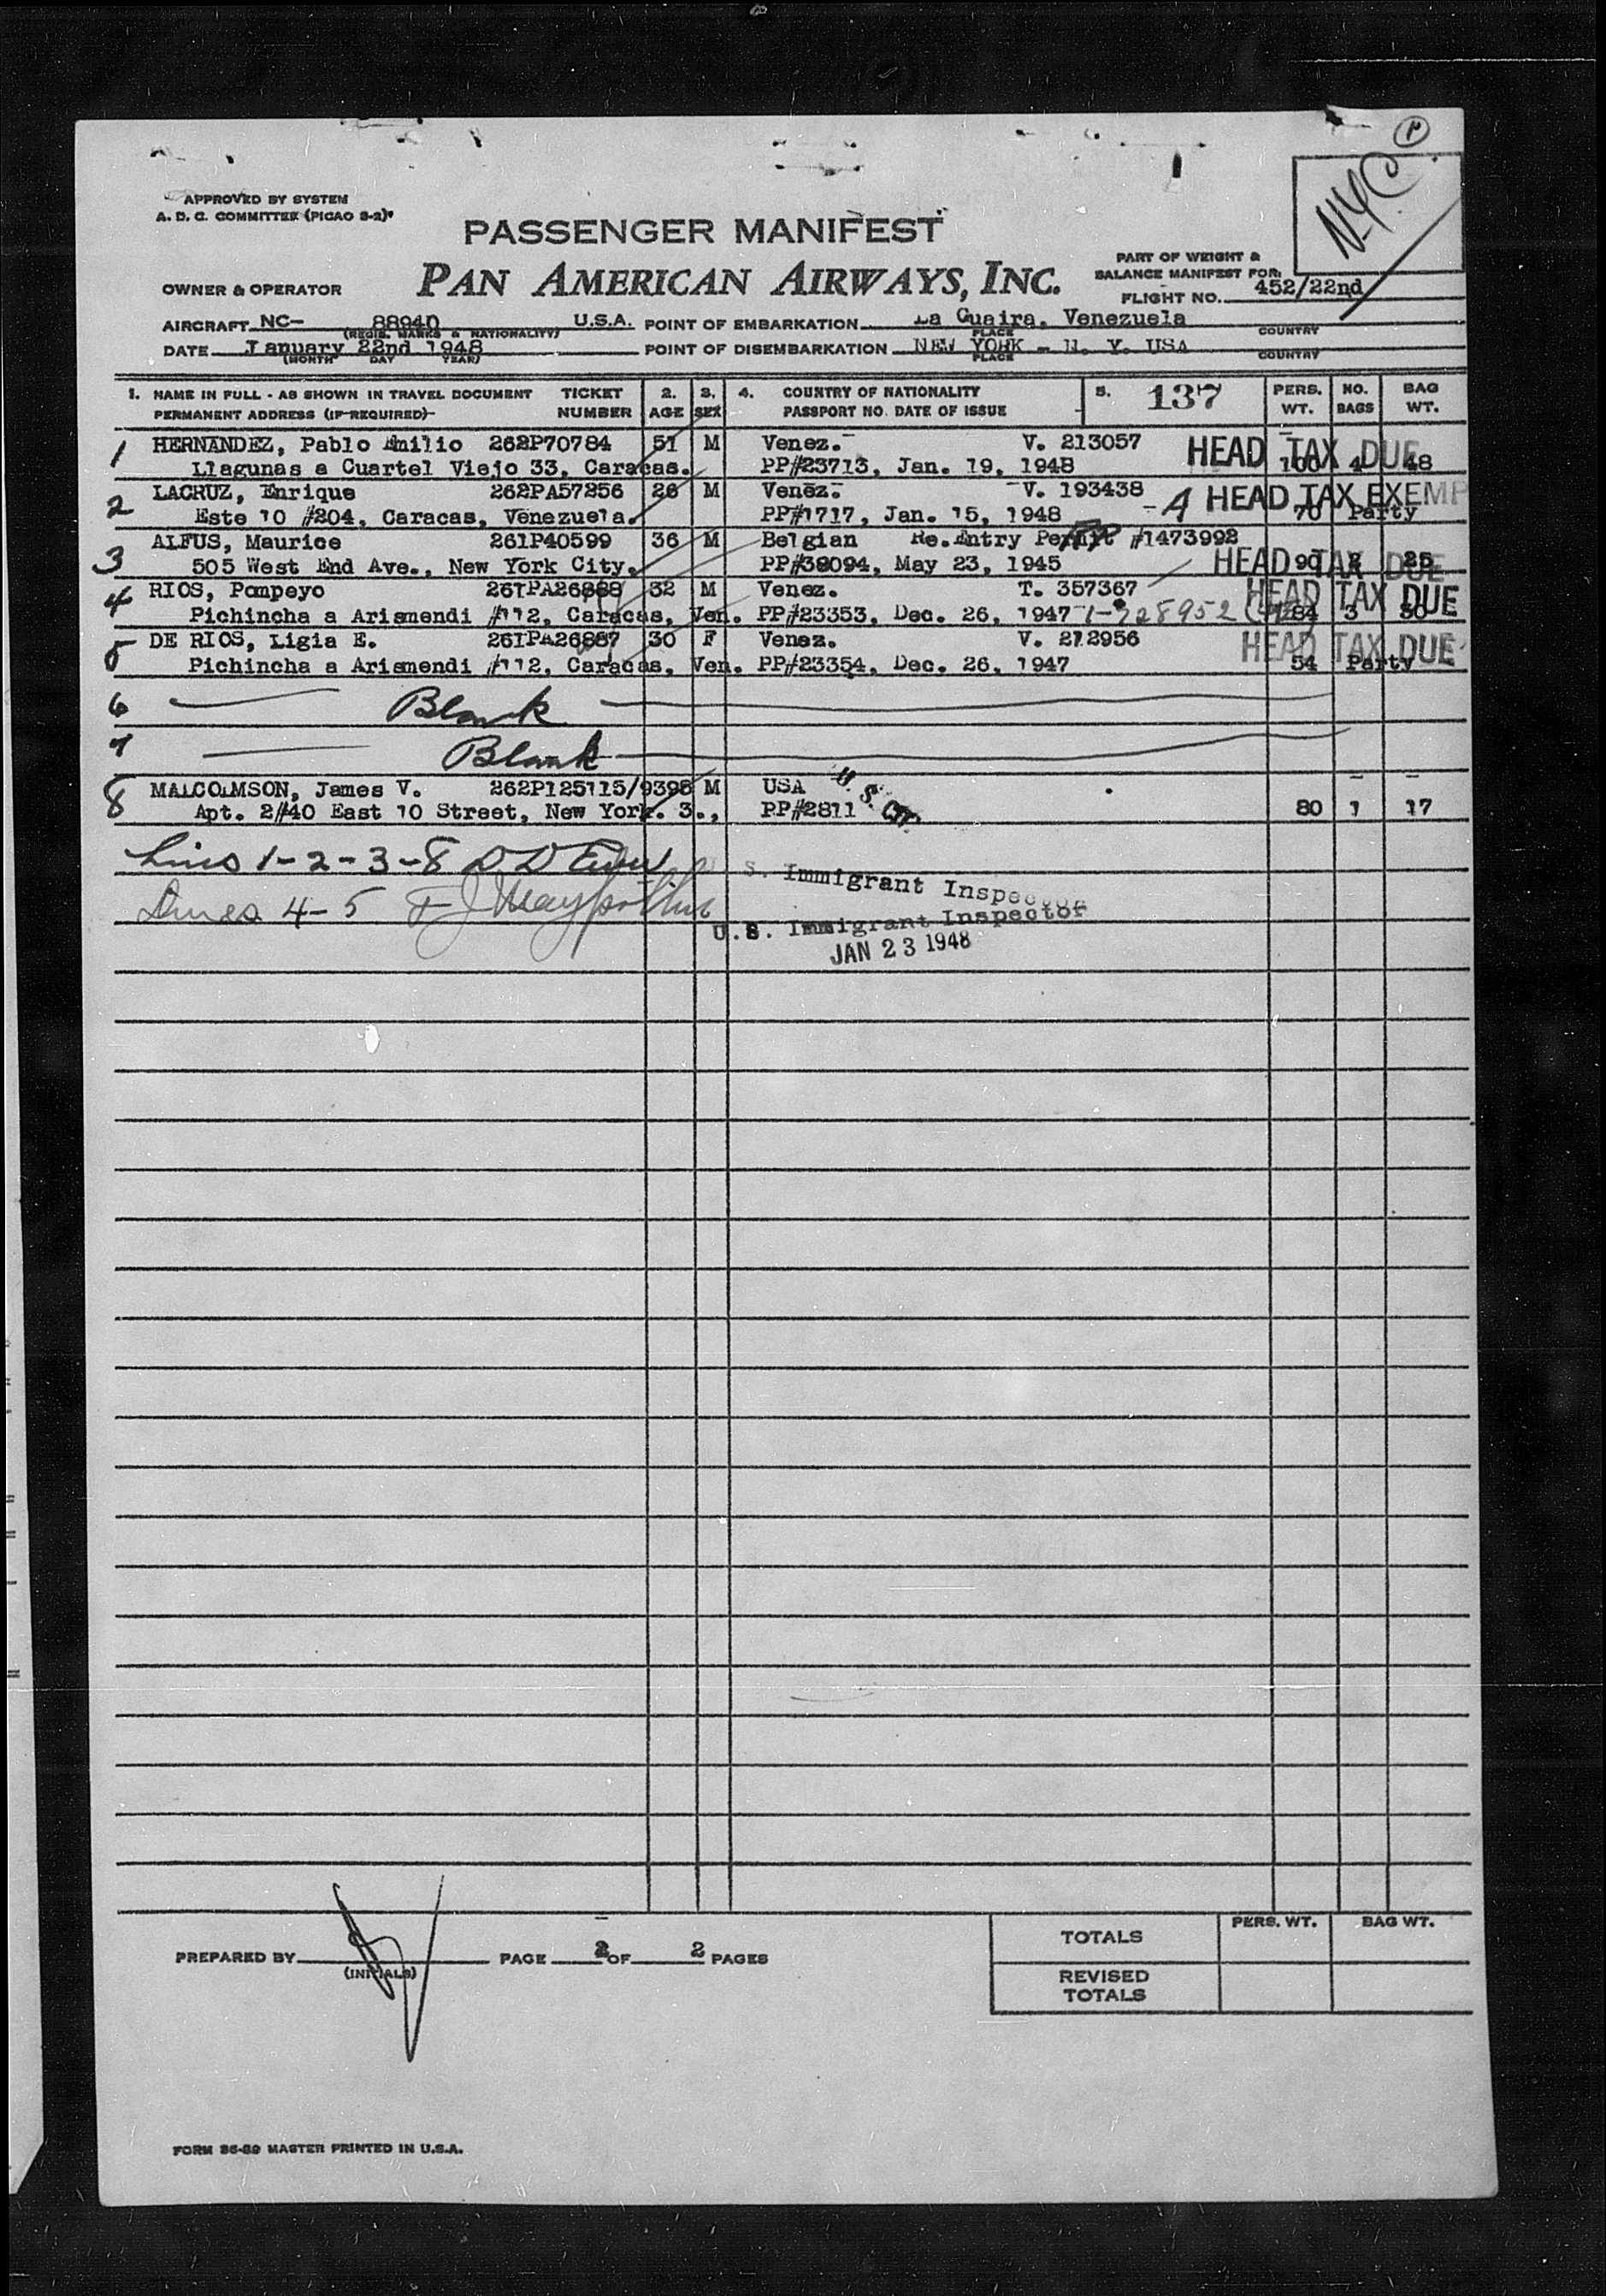 NYC
APPROVED BY SYSTEM
A. D. C. COMMITTEE (PICAO S-2)
PASSENGER MANIFEST
PART OF WEIGHT &
BALANCE MANIFEST FOR:
OWNER & OPERATOR PAN AMERICAN AIRWAYS, INC. FLIGHT NO. 452/22nd
AIRCRAFT NC- 88940 U.S.A. POINT OF EMBARKATION La Guaira, Venezuela
(REGIS. MARKS & NATIONALITY) PLACE COUNTRY
DATE January 22nd 1948 POINT OF DISEMBARKATION NEW YORK - N. Y. USA
(MONTH DAY YEAR) PLACE COUNTRY
1. NAME IN FULL - AS SHOWN IN TRAVEL DOCUMENT TICKET 2. 3. 4. COUNTRY OF NATIONALITY 5. 137 PERS. NO. BAG
PERMANENT ADDRESS (IF REQUIRED)- NUMBER AGE SEX PASSPORT NO. DATE OF ISSUE WT. BAGS WT.
1 HERNANDEZ, Pablo Emilio 262P70784 51 M Venez. V. 213057 HEAD TAX DUE
Llagunas a Cuartel Viejo 33, Caracas. PP#23713, Jan. 19, 1948 100 4 48
2 LACRUZ, Enrique 262PA57256 26 M Venez. V. 193438 A HEAD TAX EXEMP
Este 10 #204, Caracas, Venezuela. PP#1717, Jan. 15, 1948 70 Party
3 ALFUS, Maurice 261P40599 36 M Belgian Re.Entry Permit #1473992
505 West End Ave., New York City. PP#38094, May 23, 1945 HEAD TAX DUE 90 2 25
4 RIOS, Pompeyo 261PA26868 32 M Venez. T. 357367 HEAD TAX DUE
Pichincha a Arismendi #112, Caracas, Ven. PP#23353, Dec. 26, 1947 1-728952 84 3 50
5 DE RIOS, Ligia E. 261PA26867 30 F Venez. V. 212956 HEAD TAX DUE
Pichincha a Arismendi #112, Caracas, Ven. PP#23354, Dec. 26, 1947 54 Party
6 Blank
7 Blank
8 MALCOLMSON, James V. 262P125115/9395 M USA U. S. CIT.
Apt. 2#40 East 10 Street, New York. 3., PP#2811 80 1 17
Lines 1-2-3-8 D D
S. Immigrant Inspector
Lines 4-5
U.S. Immigrant Inspector
JAN 23 1948
PREPARED BY PAGE 2 OF 2 PAGES
(INITIALS)
PERS. WT. BAG WT.
TOTALS
REVISED
TOTALS
FORM 36-89 MASTER PRINTED IN U.S.A.